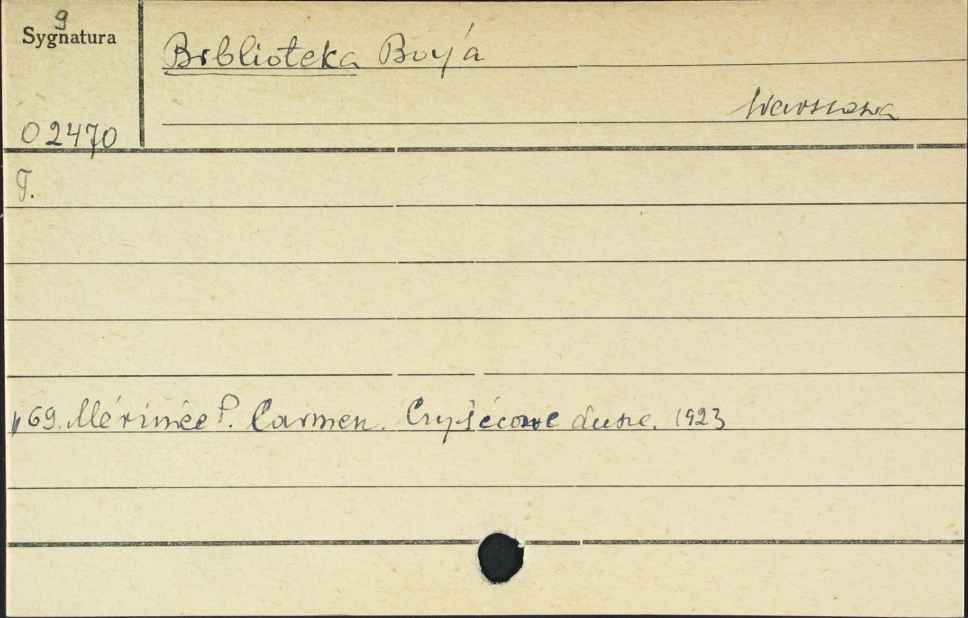 9
Sygnatura
Biblioteka Boy'a
Warszawa
02470
T.
" 69. Mérimée P. Carmen. Czyśćcowe dusze. 1923